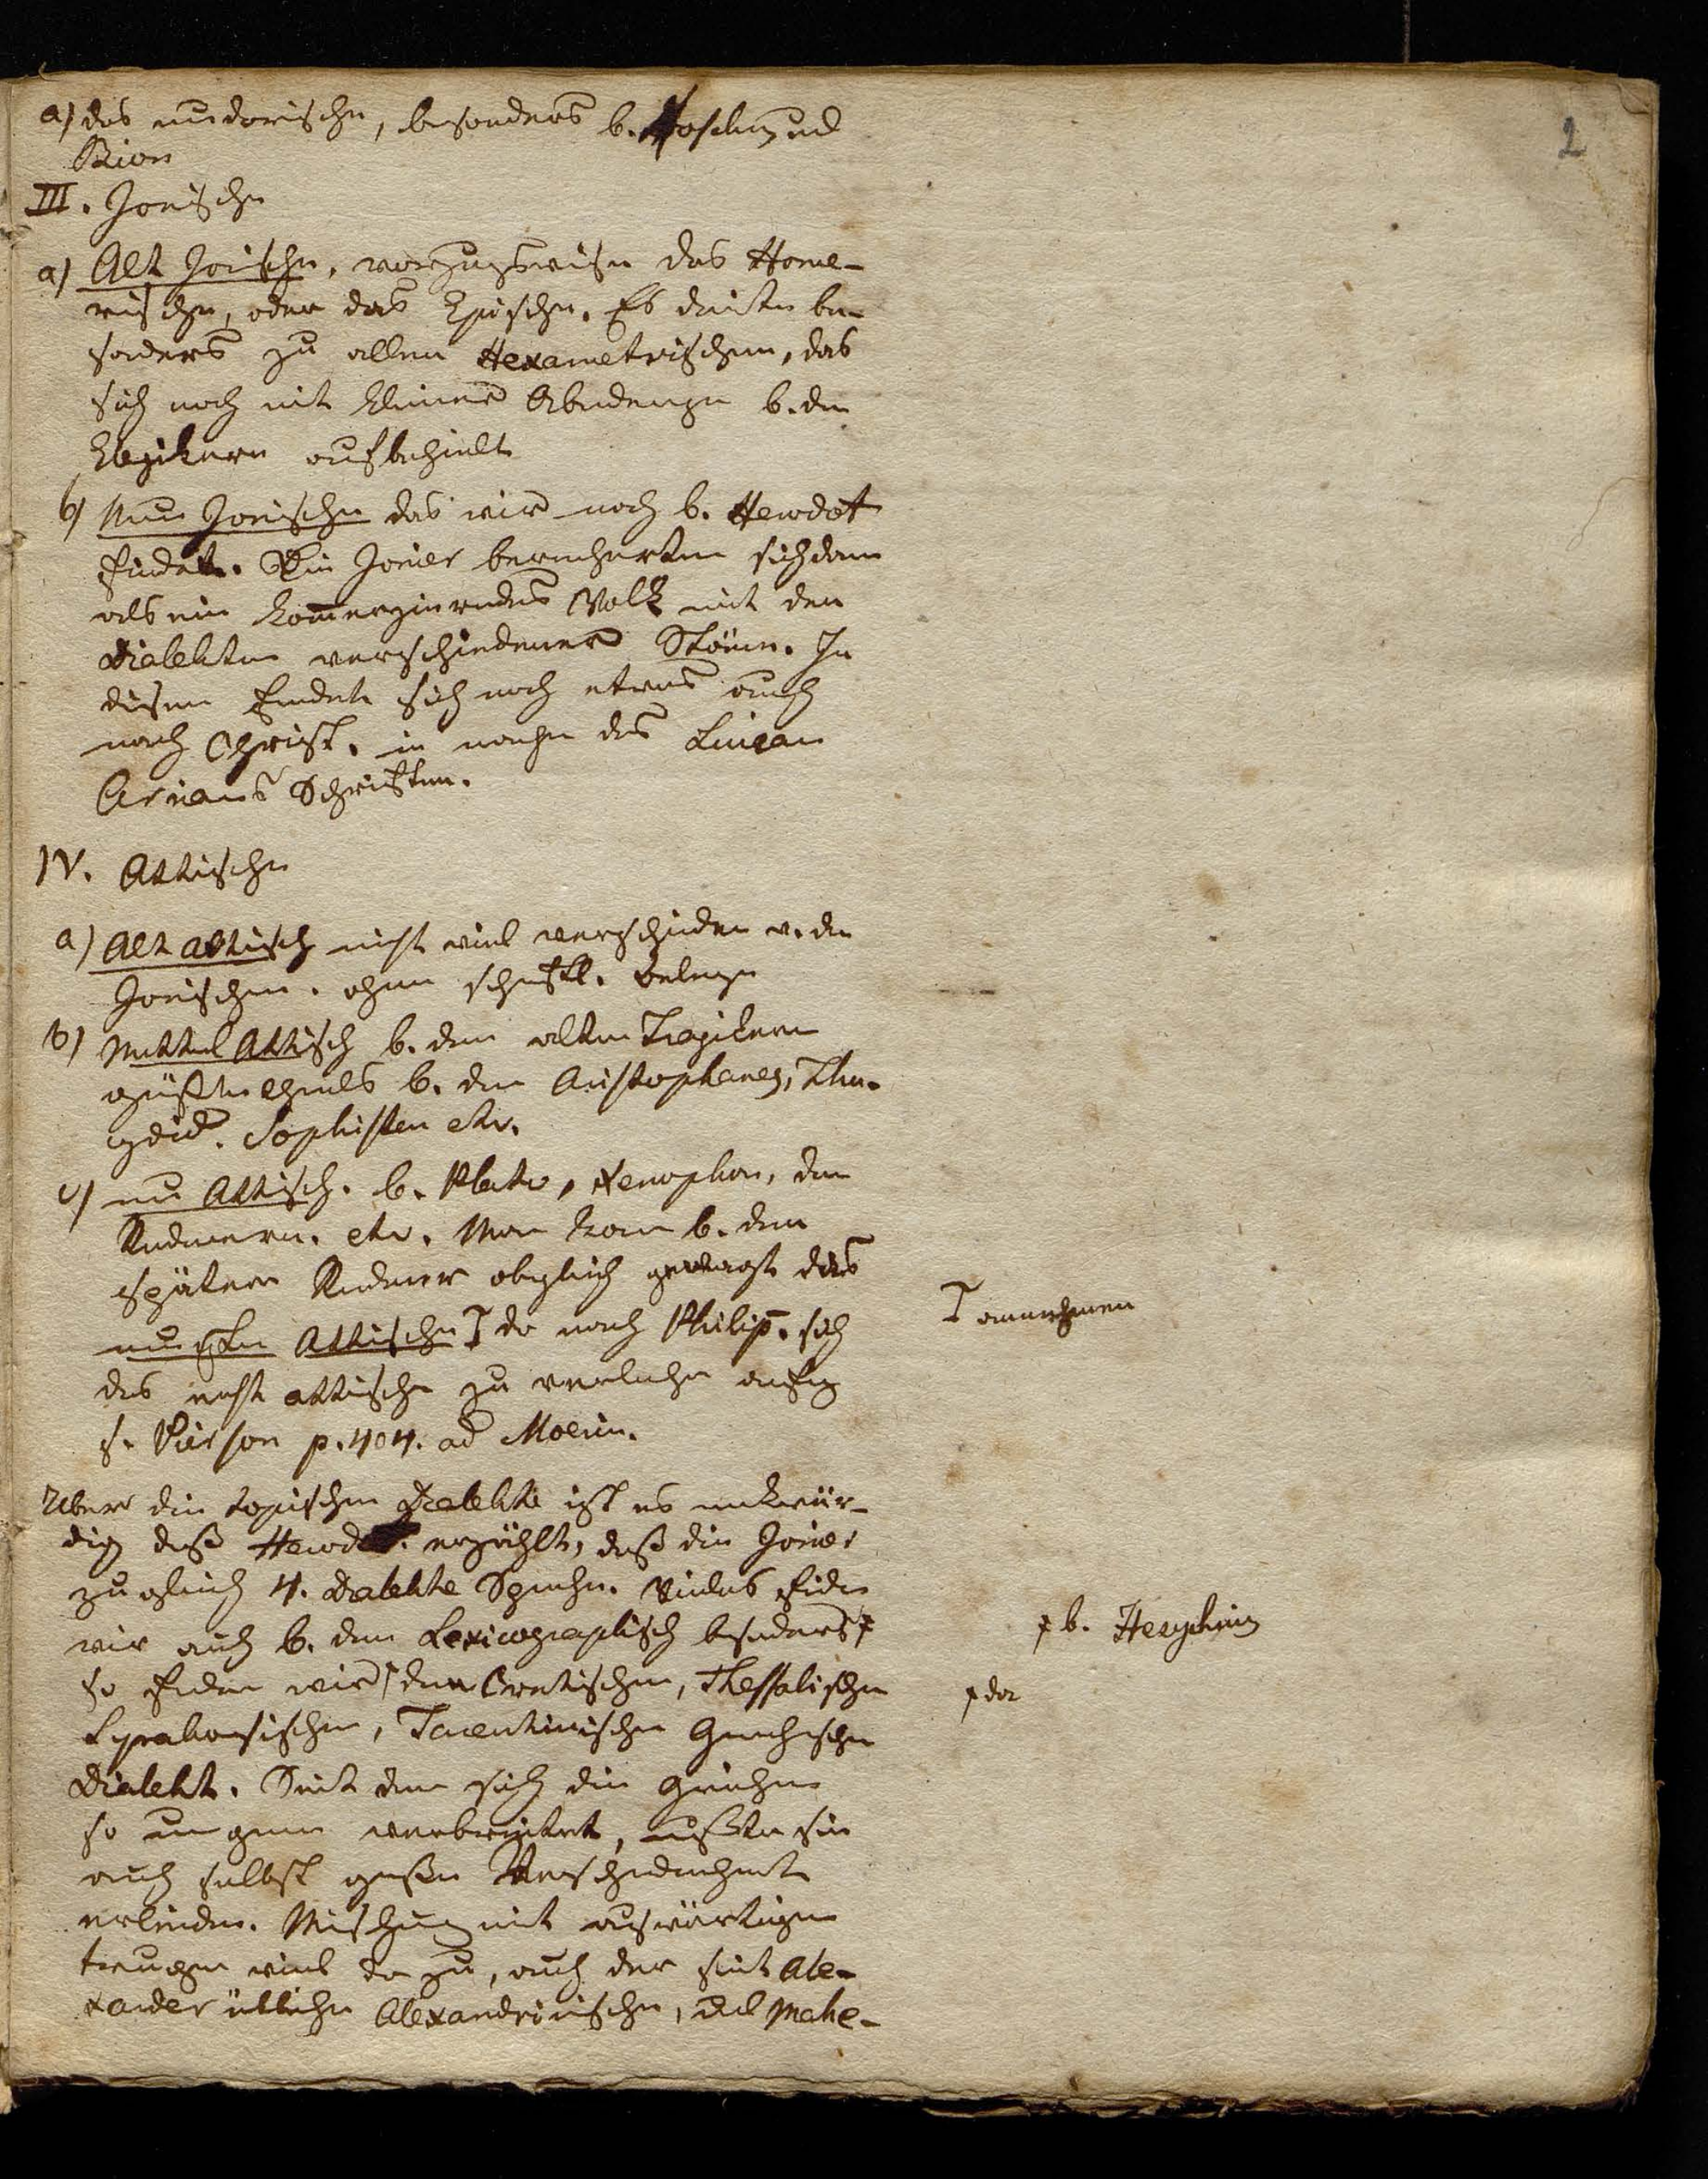 2
a) das neudorische, besonders b. Moschus und
Bion
III. Jonische
a) Alt Jonische, vorzugsweise das Home-
rische, oder das Epische. Es dauerte be-
sonders zu allem Hexametrischen, das
sich noch mit kleiner Abändrung b. den
Elegikern aufbehielt
b) Neu Jonische das wir noch b. Herodot
findet. Die Jonier bereicherten sich dann
als ein kom̄erzirendes Volk mit den
Dialekten verschiedener Stäm̄e. In
diesem findet sich noch etwas auch
nach Christ. in manchen des Lucian
Arrians Schriften.
IV. Attische
a) Alt attisch nicht viel verschieden v. den
Jonischen. ohne schriftl. Belege
b) Mittel Attisch b. den alten Tragikern
größtentheils b. den Aristophanes, Thu-
cydid. Sophisten etc.
c) neu Attisch. b. Plato, Xenophon, den
Rednern. etc. Man kann b. den
spätern Redner obgleich gewagt das
neueste Attische ⌈ da nach Philip̄. sich
⌈ annehmen
das echt attische zu verliehren anfing
s. Pierson p. 404. ad Moerin.
Uber die topischen Dialekte ist es merkwür-
dig daß Herodot. erzählt, daß die Jonier
zugleich 4. Dialekte Sprachen. Vieles finden
wir auch b. den Lexicographisch besonders ⌿
⌿ b. Hesychius
so finden wir ⌈ den Cretischen, Thessalischen
⌿ da
Syrakusischen, Tarentinischen Griechischen
Dialekt. Seit dem sich die Griechen
so ungemein verbreitet, mußten sie
auch selbst große Verschiedenheit
erleiden. Mischung mit auswärtigen
trugen viel da zu, auch der seit Ale-
xander übliche Alexandrinische, und Make-